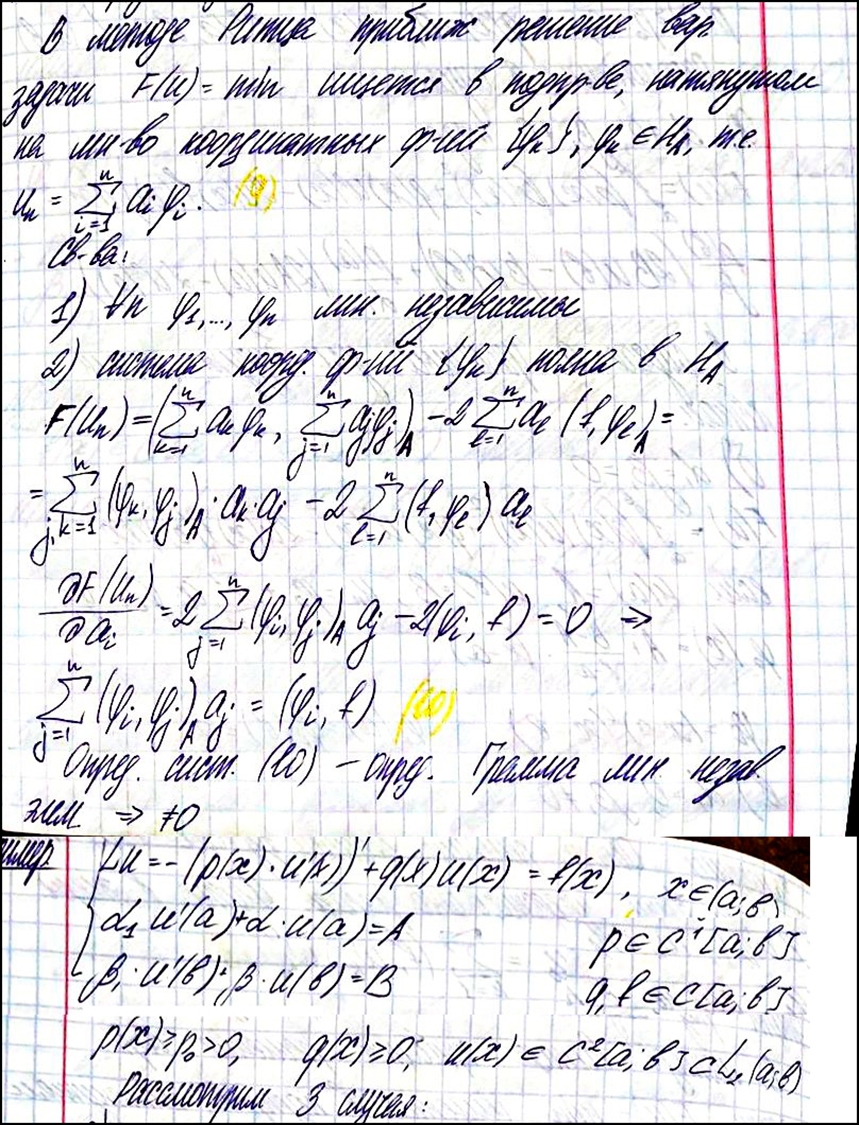 В методе Ритца приближ решение вар.
задачи F(u) = min ищется в подпр-ве, натянутом
на мн-во координатных ф-ий {φₖ}, φₖ ∈ H_A, т.е.
uₙ = ∑_{i=1}^{n} aᵢφᵢ. (9)
Св-ва:
1) ∀n φ₁,...,φₙ лин. независимы
2) система коорд. ф-ий {φₖ} полна в H_A
F(uₙ) = (∑_{k=1}^{n} aₖφₖ, ∑_{j=1}^{n} aⱼφⱼ)_A − 2∑_{ℓ=1}^{n} a_ℓ (f, φ_ℓ)_A =
= ∑_{j,k=1}^{n} (φₖ, φⱼ)_A · aₖ · aⱼ − 2∑_{ℓ=1}^{n} (f, φ_ℓ) a_ℓ
∂F(uₙ)/∂aᵢ = 2∑_{j=1}^{n} (φᵢ, φⱼ)_A aⱼ − 2(φᵢ, f) = 0 ⇒
∑_{j=1}^{n} (φᵢ, φⱼ)_A aⱼ = (φᵢ, f) (10)
Опред. сист. (10) − опред. Грамма лин. незав.
элем. ⇒ ≠0
Lu = −(p(x)·u'(x))' + q(x)u(x) = f(x), x∈(a;b)
α₁u'(a)+α·u(a)=A p∈C¹[a;b]
β₁·u'(b)+β·u(b)=B q,f∈C[a;b]
p(x)≥p₀>0, q(x)≥0, u(x)∈C²[a;b]⊂L₂(a;b)
Рассмотрим 3 случая: